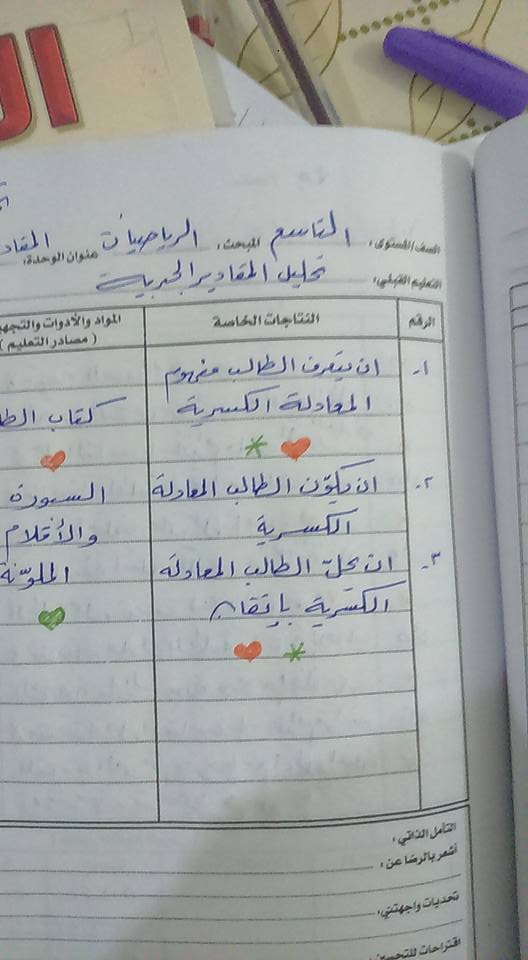 الصف/المستوى: التاسع المبحث: الرياضيات عنوان الوحدة: المقاد
التعليم القبلي: تحليل المقادير الجبرية
الرقم النتاجات الخاصة المواد والأدوات والتجهي
(مصادر التعليم)
١- ان يتعرف الطالب مفهوم
المعادلة الكسرية كتاب الطا
٢- ان يكوّن الطالب المعادلة السبورة
الكسرية والأقلام
٣- ان يحلّ الطالب المعادلة الملوّنة
الكسرية بإتقان
التأمل الذاتي:
أشعر بالرضا عن:
تحديات واجهتني:
اقتراحات للتحسين: